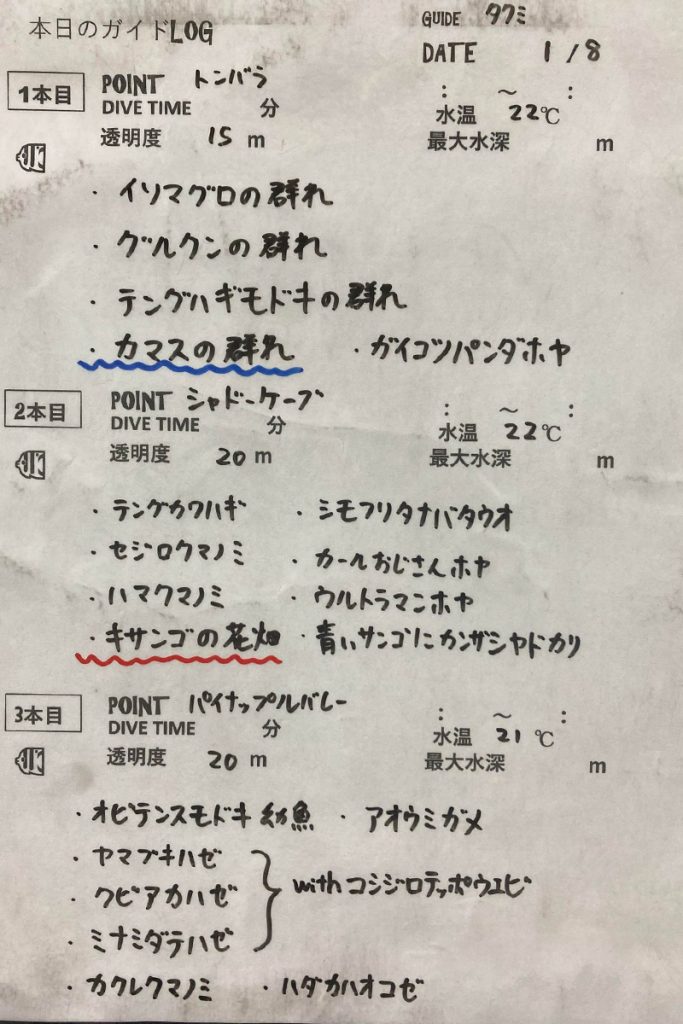 本日のガイドLOG
GUIDE タクミ
DATE 1/8
1本目 POINT トンバラ : ～ :
DIVE TIME 分 水温 22℃
透明度 15 m 最大水深 m
・イソマグロの群れ
・グルクンの群れ
・テングハギモドキの群れ
・カマスの群れ ・ガイコツパンダホヤ
2本目 POINT シャドーケーブ : ～ :
DIVE TIME 分 水温 22℃
透明度 20 m 最大水深 m
・テングカワハギ ・シモフリタナバタウオ
・セジロクマノミ ・カールおじさんホヤ
・ハマクマノミ ・ウルトラマンホヤ
・キサンゴの花畑 ・青いサンゴにカンザシヤドカリ
3本目 POINT パイナップルバレー : ～ :
DIVE TIME 分 水温 21℃
透明度 20 m 最大水深 m
・オビテンスモドキ 幼魚 ・アオウミガメ
・ヤマブキハゼ
・クビアカハゼ with コシジロテッポウエビ
・ミナミダテハゼ
・カクレクマノミ ・ハダカハオコゼ